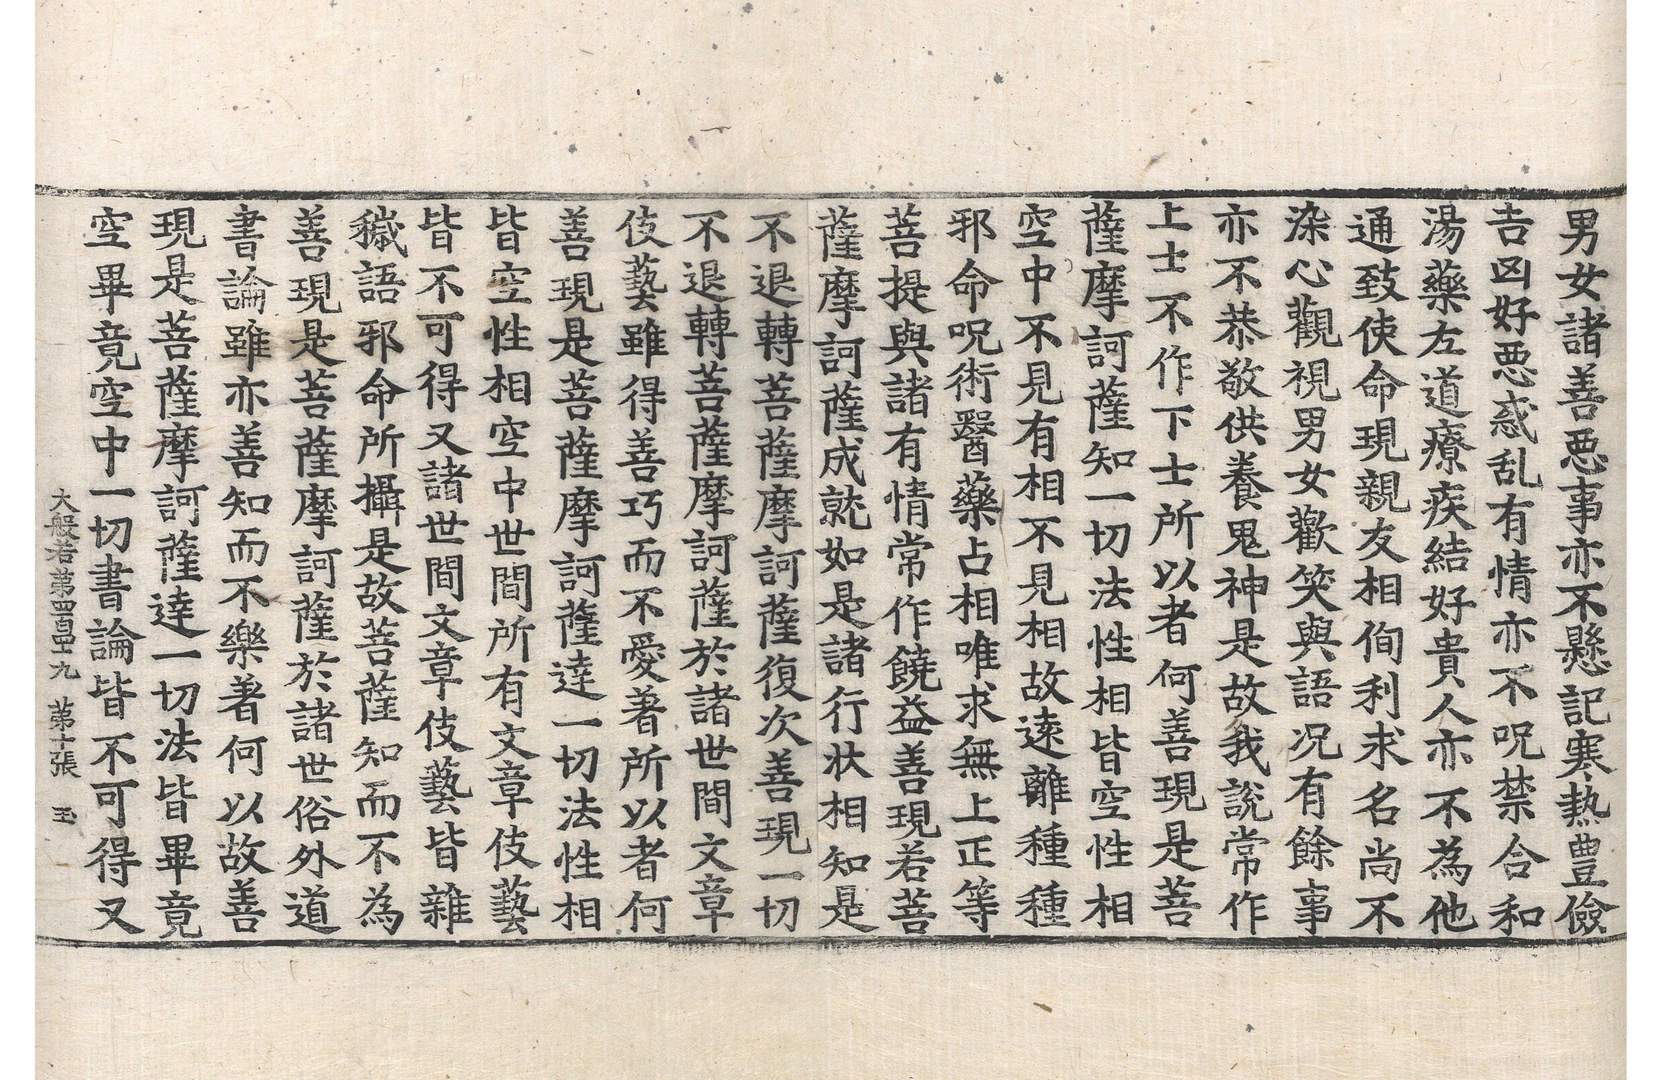 男女諸善惡事亦不懸記寒熱豊儉
吉凶好惡惑乱有情亦不呪禁合和
湯藥左道療疾結好貴人亦不為他
通致使命現親友相侚利求名尚不
染心觀視男女歡笑與語况有餘事
亦不恭敬供養鬼神是故我說常作
上士不作下士所以者何善現是菩
薩摩訶薩知一切法性相皆空性相
空中不見有相不見相故遠離種種
邪命呪術醫藥占相唯求無上正等
菩提與諸有情常作饒益善現若菩
薩摩訶薩成就如是諸行狀相知是
不退轉菩薩摩訶薩復次善現一切
不退轉菩薩摩訶薩於諸世間文章
伎藝雖得善巧而不愛著所以者何
善現是菩薩摩訶薩達一切法性相
皆空性相空中世間所有文章伎藝
皆不可得又諸世間文章伎藝皆雜
穢語邪命所攝是故菩薩知而不為
善現是菩薩摩訶薩於諸世俗外道
書論雖亦善知而不樂著何以故善
現是菩薩摩訶薩達一切法皆畢竟
空畢竟空中一切書論皆不可得又
大般若第四百四十九 第十張 玉